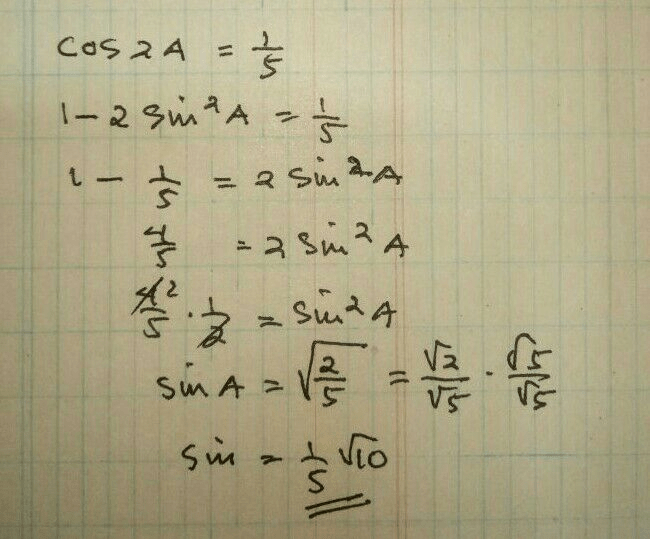 cos 2A = 1/5
1 - 2 sin²A = 1/5
1 - 1/5 = 2 sin²A
4/5 = 2 sin²A
4²/5 · 1/2 = sin²A
sin A = √(2/5) = √2/√5 · √5/√5
sin = 1/5 √10